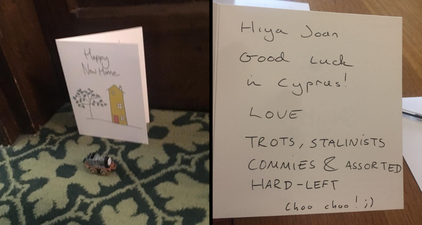 Happy
New Home
Hiya Joan
Good Luck
in Cyprus!
LOVE
TROTS, STALINISTS
COMMIES & ASSORTED
HARD-LEFT
Choo choo! ;)